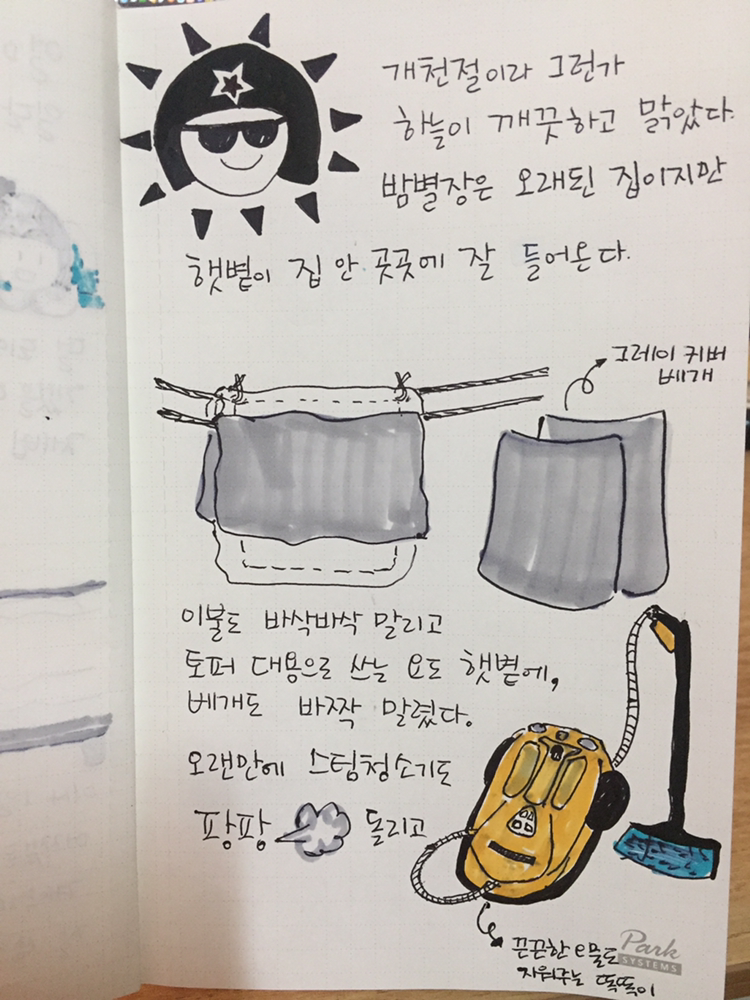 개천절이라 그런가
하늘이 깨끗하고 맑았다.
밤별장은 오래된 집이지만
햇볕이 집 안 곳곳에 잘 들어온다.
그레이 커버
베개
이불도 바삭바삭 말리고
토퍼 대용으로 쓰는 요도 햇볕에,
베개도 바짝 말렸다.
오랜만에 스팀청소기도
팡팡 돌리고
끈끈한 e물도
지워주는 똑똑이
Park
SYSTEMS